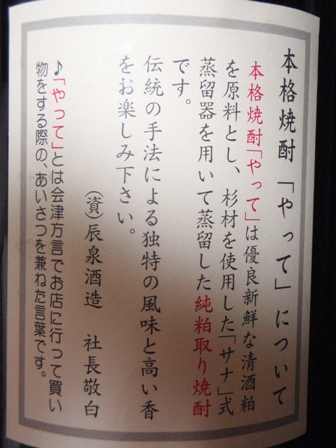 本格焼酎「やって」について
本格焼酎「やって」は優良新鮮な清酒粕
を原料とし、杉材を使用した「サナ」式
蒸留器を用いて蒸留した純粕取り焼酎
です。
伝統の手法による独特の風味と高い香
をお楽しみ下さい。
(資)辰泉酒造 社長敬白
♪「やって」とは会津方言でお店に行って買い
物をする際の、あいさつを兼ねた言葉です。